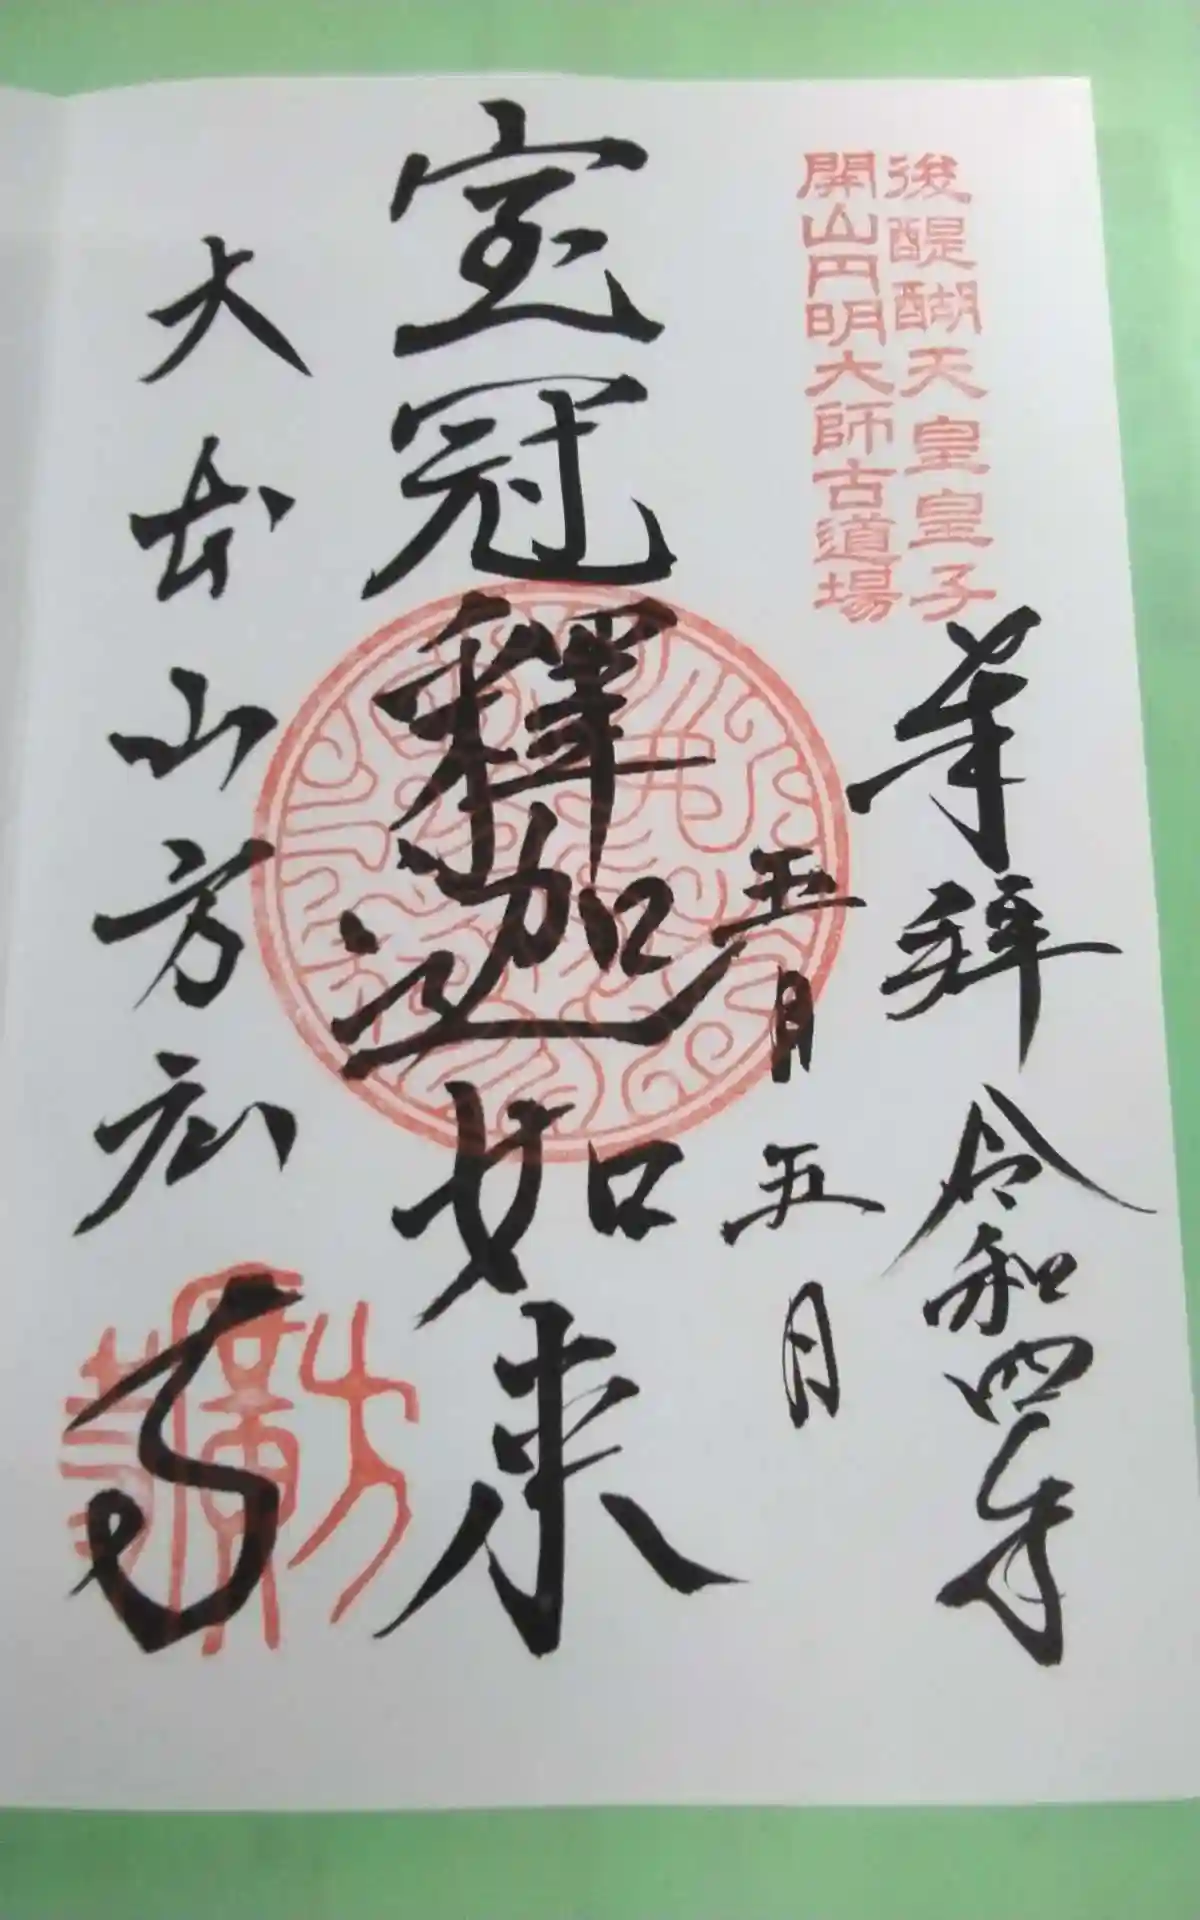 後醍醐天皇皇子
開山円明大師古道場
奉拝 令和四年
五月五月
宝冠釋迦如来
大本山方広寺
方廣寺